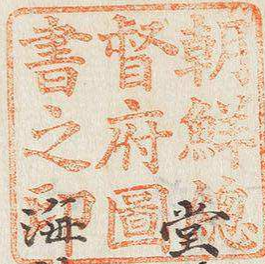 朝鮮總
督府圖
書之印
堂
海